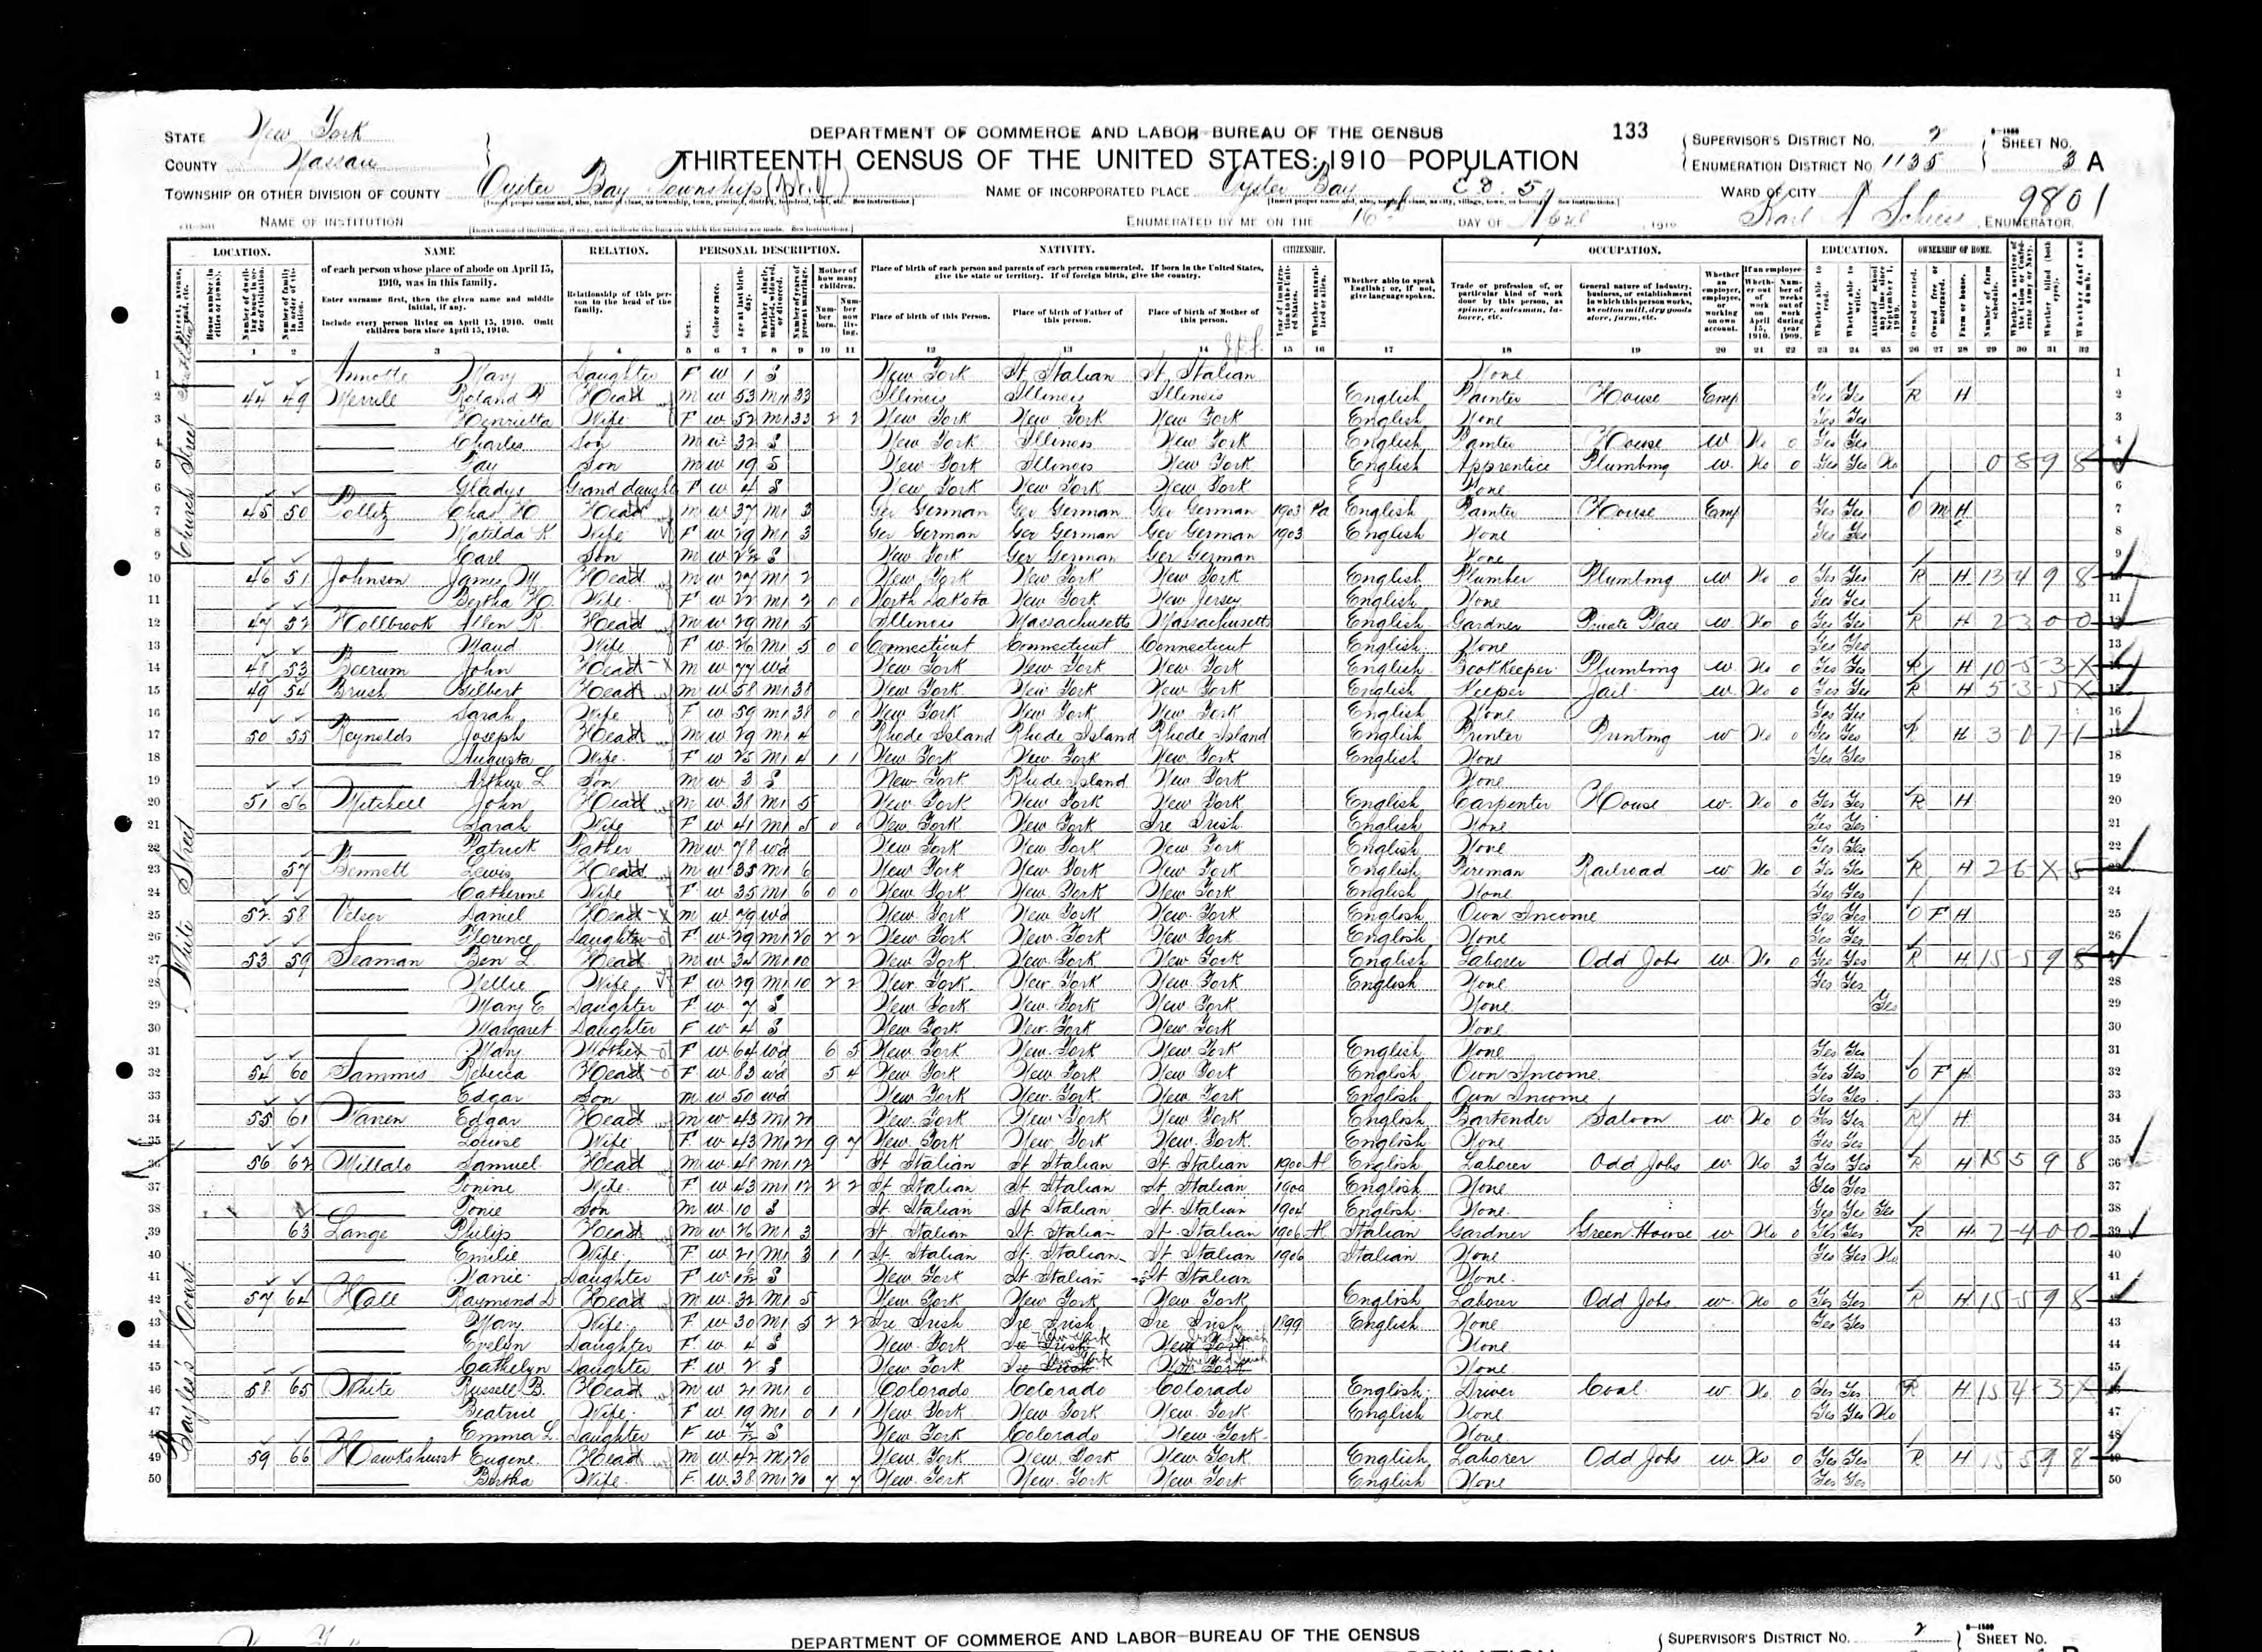 133
DEPARTMENT OF COMMERCE AND LABOR—BUREAU OF THE CENSUS
THIRTEENTH CENSUS OF THE UNITED STATES: 1910—POPULATION
STATE New York
COUNTY Nassau
TOWNSHIP OR OTHER DIVISION OF COUNTY Oyster Bay Township
NAME OF INSTITUTION
NAME OF INCORPORATED PLACE Oyster Bay
ENUMERATED BY ME ON THE 16th DAY OF April, 1910
SUPERVISOR'S DISTRICT NO. 2
ENUMERATION DISTRICT NO. 1135
SHEET NO. 3 A
WARD OF CITY
9801
ENUMERATOR
LOCATION. NAME RELATION. PERSONAL DESCRIPTION. NATIVITY. CITIZENSHIP. OCCUPATION. EDUCATION. OWNERSHIP OF HOME.
of each person whose place of abode on April 15, 1910, was in this family.
Enter surname first, then the given name and middle initial, if any.
Include every person living on April 15, 1910. Omit children born since April 15, 1910.
Relationship of this person to the head of the family.
Place of birth of each person and parents of each person enumerated. If born in the United States, give the state or territory. If of foreign birth, give the country.
Place of birth of this Person. Place of birth of Father of this person. Place of birth of Mother of this person.
Whether able to speak English; or, if not, give language spoken.
Church Street
White Street
Bayles's Court
1 Annette Mary Daughter F W 1 S New York It Italian It Italian None
2 44 49 Merrill Roland Head M W 53 M1 33 Illinois Illinois Illinois English Painter House Emp Yes Yes R H
3 Henrietta Wife F W 52 M1 33 2 2 New York New York New York English None Yes Yes
4 Charles Son M W 32 S New York Illinois New York English Painter House W No 0 Yes Yes
5 Fay Son M W 19 S New York Illinois New York English Apprentice Plumbing W No 0 Yes Yes No 0 8 9 8
6 Gladys Grand daught F W 4 S New York New York New York None
7 45 50 Pollitz Chas H Head M W 37 M1 3 Ger German Ger German Ger German 1903 Pa English Painter House Emp Yes Yes O M H
8 Matilda K Wife F W 29 M1 3 Ger German Ger German Ger German 1903 English None Yes Yes
9 Carl Son M W S New York Ger German Ger German None
10 46 51 Johnson James Head M W 27 M1 2 New York New York New York English Plumber Plumbing W No 0 Yes Yes R H 13 4 9 8
11 Bertha H. Wife F W 22 M1 2 0 0 North Dakota New York New Jersey English None Yes Yes
12 47 52 Hollbrook Allen R. Head M W 29 M1 5 Illinois Massachusetts Massachusetts English Gardner Private Place W No 0 Yes Yes R H 2 3 0 0
13 Maud Wife F W 26 M1 5 0 0 Connecticut Connecticut Connecticut English None Yes Yes
14 48 53 Beerum John Head M W 77 Wd New York New York New York English Bookkeeper Plumbing W No 0 Yes Yes R H 10 5 3 X
15 49 54 Brush Gilbert Head M W 58 M1 38 New York New York New York English Keeper Jail W No 0 Yes Yes R H 5 3 5 X
16 Sarah Wife F W 59 M1 38 0 0 New York New York New York English None Yes Yes
17 50 55 Reynolds Joseph Head M W 29 M1 4 Rhode Island Rhode Island Rhode Island English Printer Printing W No 0 Yes Yes R H 3 0 7 1
18 Augusta Wife F W 25 M1 4 1 1 New York New York New York English None Yes Yes
19 Arthur L Son M W 3 S New York Rhode Island New York None
20 51 56 Mitchell John Head M W 38 M1 5 New York New York New York English Carpenter House W No 0 Yes Yes R H
21 Sarah Wife F W 41 M1 5 0 0 New York New York Ire Irish English None Yes Yes
22 Patrick Father M W 78 Wd New York New York New York English None Yes Yes
23 57 Bennett Lewis Head M W 35 M1 6 New York New York New York English Fireman Railroad W No 0 Yes Yes R H 2 6 X 5
24 Catherine Wife F W 35 M1 6 0 0 New York New York New York English None Yes Yes
25 52 58 Velsor Daniel Head M W 79 Wd New York New York New York English Own Income Yes Yes O F H
26 Florence Daughter F W 29 M1 20 2 2 New York New York New York English None Yes Yes
27 53 59 Seaman Ben L. Head M W 34 M1 10 New York New York New York English Laborer Odd Jobs W No 0 Yes Yes R H 15 5 9 8
28 Nellie Wife F W 29 M1 10 2 2 New York New York New York English None Yes Yes
29 Mary E Daughter F W 7 S New York New York New York None Yes
30 Margaret Daughter F W 4 S New York New York New York None
31 Mary Mother F W 64 Wd 6 5 New York New York New York English None Yes Yes
32 54 60 Sammis Rebecca Head F W 83 Wd 5 4 New York New York New York English Own Income Yes Yes O F H
33 Edgar Son M W 50 Wd New York New York New York English Own Income Yes Yes
34 55 61 Warren Edgar Head M W 43 M1 21 New York New York New York English Bartender Saloon W No 0 Yes Yes R H
35 Louise Wife F W 43 M1 21 9 7 New York New York New York English None Yes Yes
36 56 62 Millalo Samuel Head M W 48 M1 12 It Italian It Italian It Italian 1900 Al English Laborer Odd Jobs W No 3 Yes Yes R H 15 5 9 8
37 Wife F W 43 M1 12 2 2 It Italian It Italian It Italian 1900 English None Yes Yes
38 Tonie Son M W 10 S It Italian It Italian It Italian 1904 English None Yes Yes Yes
39 63 Lange Philip Head M W 26 M1 3 It Italian It Italian It Italian 1906 Al Italian Gardner Green House W No 0 Yes Yes R H 2 4 0 0
40 Emilie Wife F W 21 M1 3 1 1 It Italian It Italian It Italian 1906 Italian None Yes Yes No
41 Nanie Daughter F W S New York It Italian It Italian None
42 57 64 Hall Raymond D Head M W 32 M1 5 New York New York New York English Laborer Odd Jobs W No 0 Yes Yes R H 15 5 9 8
43 Mary Wife F W 30 M1 5 2 2 Ire Irish Ire Irish Ire Irish 1899 English None Yes Yes
44 Evelyn Daughter F W 4 S New York New York None
45 Cathelyn Daughter F W 2 S New York New York None
46 58 65 White Russell B. Head M W 21 M1 0 Colorado Colorado Colorado English Driver Coal W No 0 Yes Yes R H 15 4 3 X
47 Beatrice Wife F W 19 M1 0 1 1 New York New York New York English None Yes Yes No
48 Emma L. Daughter F W S New York Colorado New York None
49 59 66 Hawkshurst Eugene Head M W 42 M1 20 New York New York New York English Laborer Odd Jobs W No 0 Yes Yes R H 15 5 9 8
50 Bertha Wife F W 38 M1 20 7 7 New York New York New York English None Yes Yes
DEPARTMENT OF COMMERCE AND LABOR—BUREAU OF THE CENSUS
SUPERVISOR'S DISTRICT NO. 2
SHEET NO.